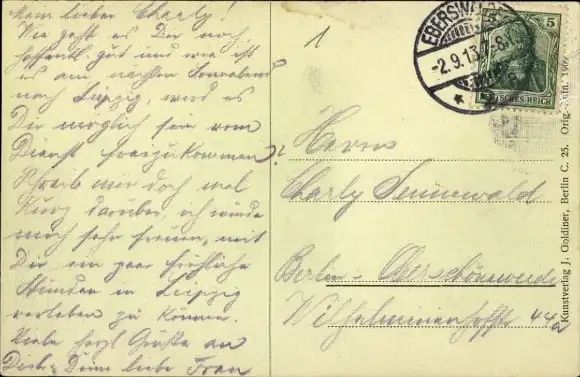 Mein lieber Charly!
Wie geht es Dir noch
hoffentl. gut und wie ist
es am nächsten Sonnabend
nach Leipzig, wird es
Dir möglich sein vom
Dienst freizukommen?
Schreib mir doch mal
Kurz darüber, ich würde
mich sehr freuen, mit
Dir ein paar fröhliche
Stunden in Leipzig
verleben zu können.
Viele herzl Grüße an
Dich u. Deine liebe Frau
1
5
5
-2.9.13.
DEUTSCHES REICH
Herrn
Charly
Berlin-Oberschöneweide
Wilhelminenhofstr 44a
Kunstverlag J. Goldiner, Berlin C. 25.